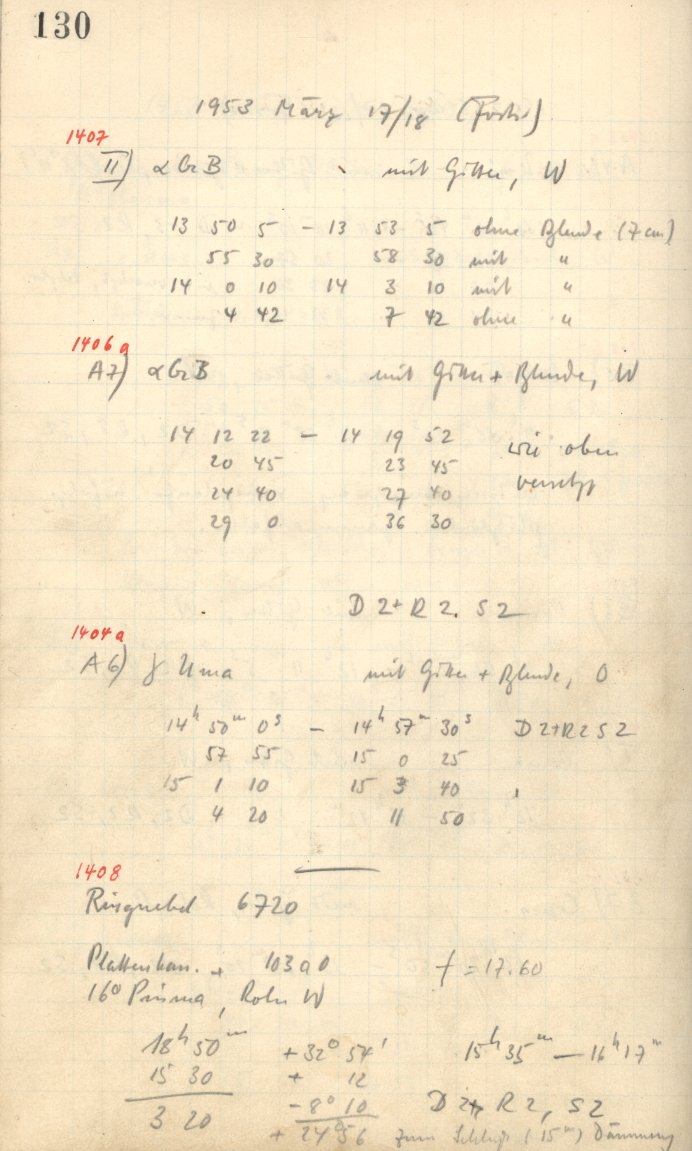 130
1953 März 17/18 (Forts.)
1407
II) α Gr B mit Gitter, W
13 50 5 – 13 53 5 ohne Blende (7 cm)
55 30 58 30 mit "
14 0 10 14 3 10 mit "
4 42 7 42 ohne "
1406a
A7) α Gr B mit Gitter + Blende, W
14 12 22 – 14 19 52 wie oben
20 45 23 45 versetzt
24 40 27 40
29 0 36 30
D 2+ R 2. S 2
1404a
A6) γ Uma mit Gitter + Blende, O
14ʰ 50ᵐ 0ˢ – 14ʰ 57ᵐ 30ˢ D 2+ R2 S 2
57 55 15 0 25
15 1 10 15 3 40
4 20 11 50
1408
Ringnebel 6720
Plattenkam. 103a0 f = 17.60
16° Prisma, Rohr W
18ʰ 50ᵐ +32° 54' 15ʰ 35ᵐ — 16ʰ 17ᵐ
15 30 + 12
3 20 -8° 10 D 2+, R 2, S 2
+ 24° 56 zum Schluß (15ᵐ) Dämmerung